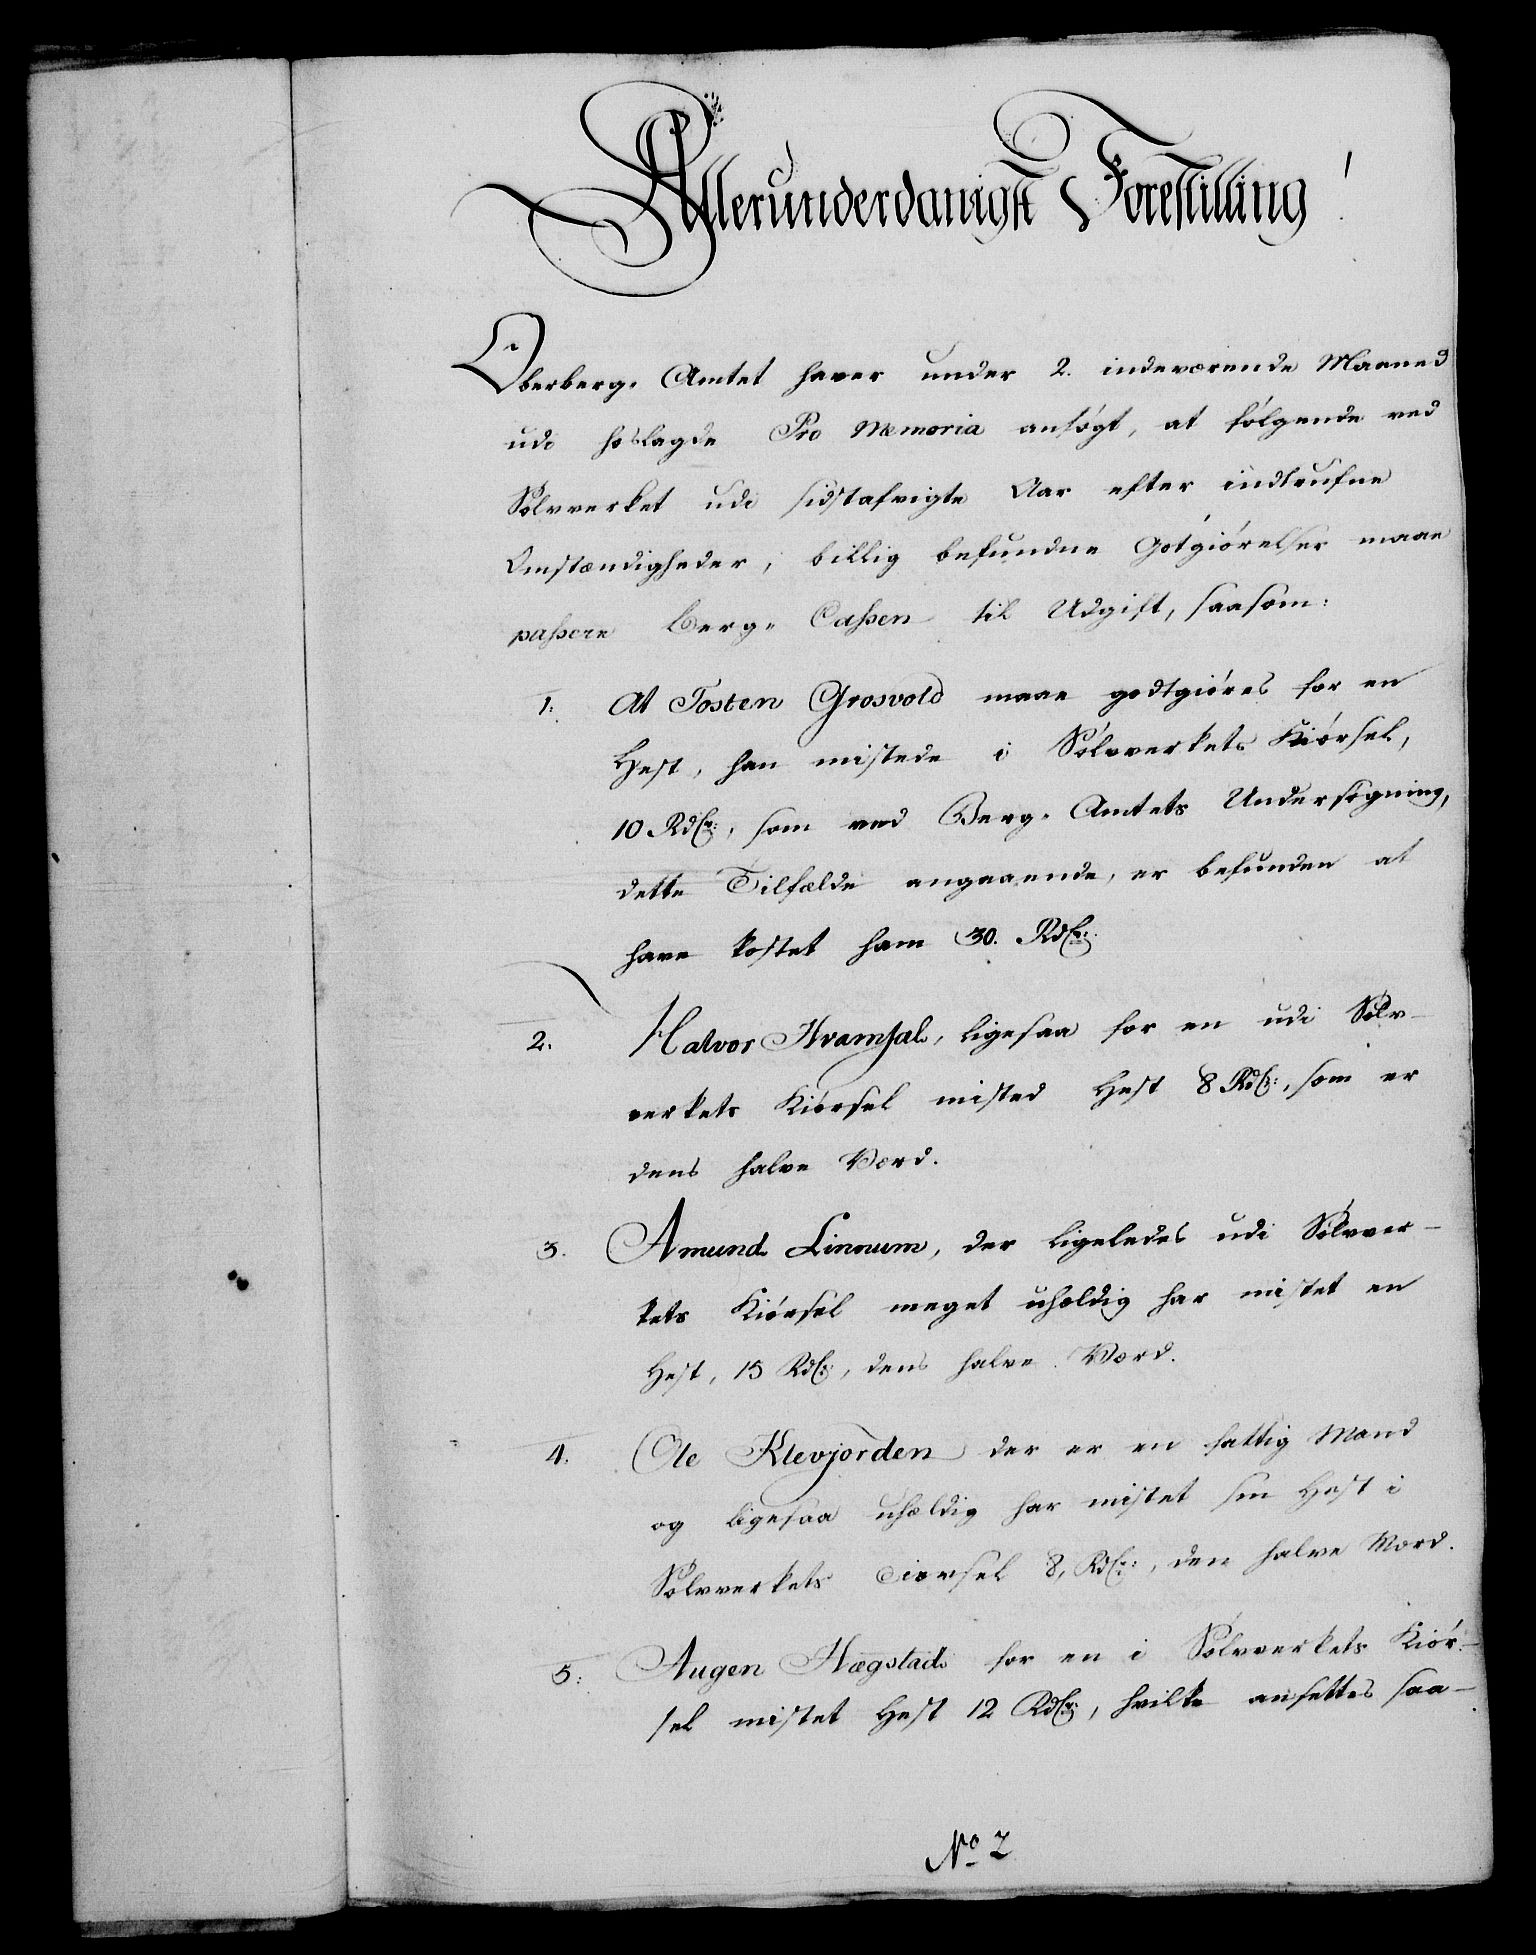 Allerunderdanigst Forestilling!
Oberberg-Amtet haver under 2. indeværende Maaned
udi hoslagde Pro Memoria ansøgt, at følgende ved
Sølvverket udi sidstafvigte Aar efter indtrufne
Omstændigheder, billig befundne Gotgiørelser maae
passere Berg-Cassen til Udgift, saasom:
1. At Tosten Grosvold maae godtgiøres for en
Hest, han mistede i Sølvverkets Kiørsel,
10 Rdlr:, som ved Berg-Amtets Undersøgning,
dette Tilfælde angaaende, er befunden at
have kostet ham 30. Rdlr:
2. Halvor Hvamsal, ligesaa for en udi Sølv-
verkets Kiørsel misted Hest 8 Rdlr:, som er
dens halve Værd.
3. Amund Linnum, der ligeledes udi Sølvver-
kets Kiørsel meget uheldig har mistet en
Hest, 15 Rdlr:, dens halve Værd.
4. Ole Klevjorden der er en fattig Mand
og ligesaa uheldig har mistet sin Hest i
Sølvverkets Ciørsel 8, Rdlr:, den halve Værd.
5. Augen Hægstad for en i Sølvverkets Kiør-
sel mistet Hest 12 Rdlr:, hvilke ansettes saa-
No 2